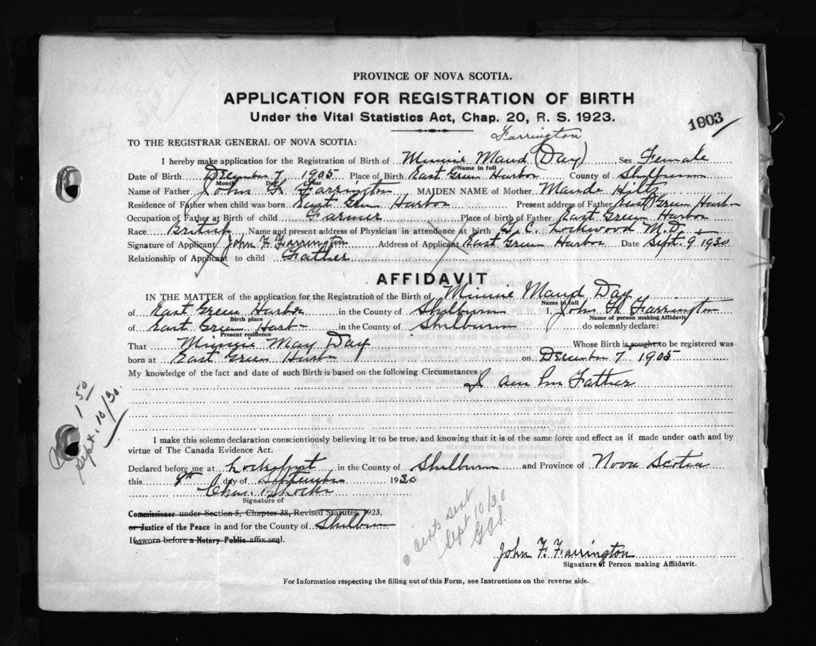 PROVINCE OF NOVA SCOTIA.
APPLICATION FOR REGISTRATION OF BIRTH
Under the Vital Statistics Act, Chap. 20, R. S. 1923.
1903
Farrington
TO THE REGISTRAR GENERAL OF NOVA SCOTIA:
I hereby make application for the Registration of Birth of Minnie Maud (Day) Sex Female
Name in full
Date of Birth December 7, 1905 Place of Birth East Green Harbor County of Shelburne
Month Day Year
Name of Father John F. Farrington MAIDEN NAME of Mother Maude Hiltz
Residence of Father when child was born East Green Harbor Present address of Father East Green Harbor
Occupation of Father at Birth of child Farmer Place of birth of Father East Green Harbor
Race British Name and present address of Physician in attendance at birth Lockwood M.D.
Signature of Applicant John F. Farrington Address of Applicant East Green Harbor Date Sept. 9 1930
Relationship of Applicant to child Father
AFFIDAVIT
IN THE MATTER of the application for the Registration of the Birth of Minnie Maud Day
Name in full
of East Green Harbor in the County of Shelburne I, John Farrington
Birth place Name of person making Affidavit
of East Green Harbor in the County of Shelburne do solemnly declare:
Present residence
That Minnie May Day Whose Birth is sought to be registered was
born at East Green Harbor on December 7, 1905
My knowledge of the fact and date of such Birth is based on the following Circumstances
I am her Father
I make this solemn declaration conscientiously believing it to be true, and knowing that it is of the same force and effect as if made under oath and by
virtue of The Canada Evidence Act.
Declared before me at Lockeport in the County of Shelburne and Province of Nova Scotia
this 9th day of September 1930
Chas. Locke
Signature of
Commissioner under Section 5, Chapter 38, Revised Statutes, 1923,
or Justice of the Peace in and for the County of Shelburne
If sworn before a Notary Public affix seal.
1.50
Sept. 10/30
cents sent
Sept 10/30
John F. Farrington
Signature of Person making Affidavit.
For Information respecting the filling out of this Form, see Instructions on the reverse side.